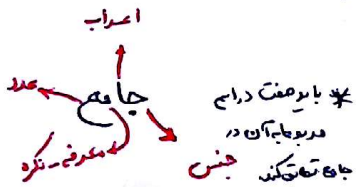 اعراب
جامع
عدد
معرفه-نکره
جنس
* باید صفت در اسم
مربوط به آن در
جامع تطابق کند.